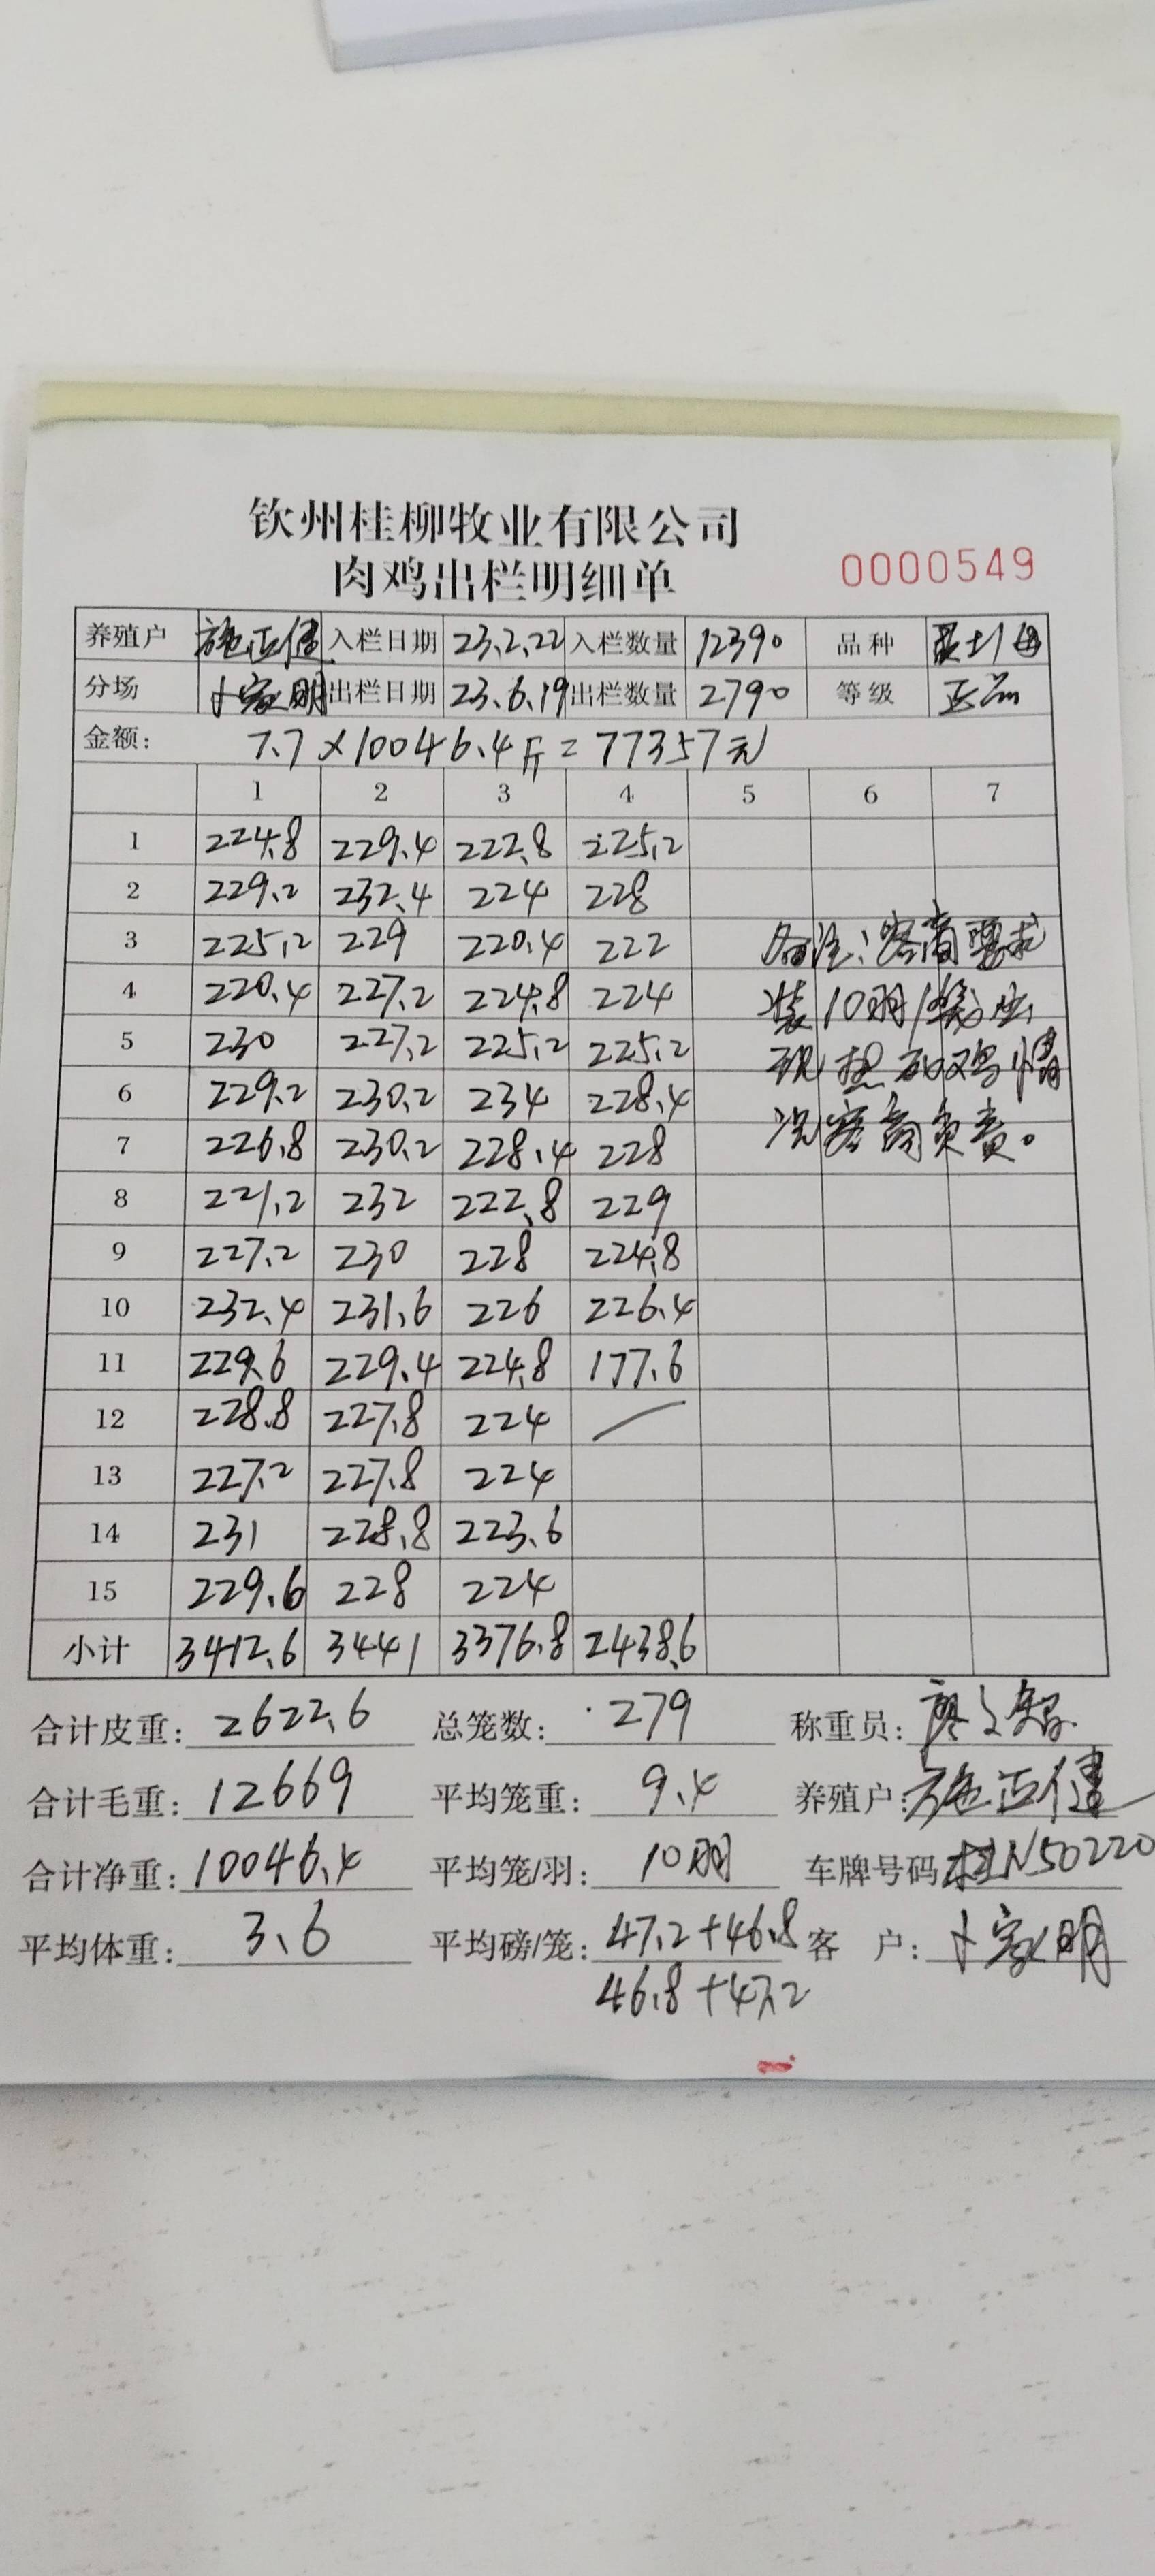 钦州桂柳牧业有限公司
肉鸡出栏明细单
0000549
养殖户 施正健 入栏日期 23.2.22 入栏数量 12390 品种 土1母
分场 卜家明 出栏日期 23.6.19 出栏数量 2790 等级 正品
金额: 7.7×10046.4斤=77357元
1 2 3 4 5 6 7
1 224.8 229.4 222.8 225.2
2 229.2 232.4 224 228
3 225.2 229 220.4 222 备注:客商要求
4 220.4 227.2 224.8 224 装10羽/笼,出
5 230 227.2 225.2 225.2 现热死鸡情
6 229.2 230.2 234 228.4
7 226.8 230.2 228.4 228 况客商负责。
8 221.2 232 222.8 229
9 227.2 230 228 224.8
10 232.4 231.6 226 226.4
11 229.6 229.4 224.8 177.6
12 228.8 227.8 224
13 227.2 227.8 224
14 231 228.8 223.6
15 229.6 228 224
小计 3412.6 3441 3376.8 2438.6
合计皮重: 2622.6 总笼数: 279 称重员: 廖文智
合计毛重: 12669 平均笼重: 9.4 养殖户: 施正健
合计净重: 10046.4 平均笼/羽: 10羽 车牌号码 桂N50220
平均体重: 3.6 平均磅/笼: 47.2+46.8 客 户: 卜家明
46.8+47.2